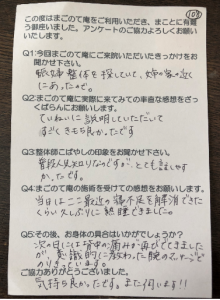 108
この度はまごのて庵をご利用いただき、まことに有難
う御座いました。アンケートのご協力よろしくお願い
いたします。
Q1:今回まごのて庵にご来院いただいたきっかけをお
聞かせ下さい。
整体を探していて、
にあったので。
Q2:まごのて庵に実際に来てみての率直な感想をざっ
くばらんにお願いします。
ていねいに説明していただいて
すごくきもち良かったです
Q3:整体師こばやしの印象をお聞かせ下さい。
普段人見知りなのですが、とても話しやす
かったです。
Q4:まごのて庵の施術を受けての感想をお願いします。
当日はここ最近の寝不足を解消できた
くらい久しぶりに熟睡できました。
Q5:その後、お身体の具合はいかがでしょうか?
次の日には背中の痛みが再びでてきました
が、意識的に教わった腕のストレッチ
ご協力ありがとうございました。
気持ち良かったです。また伺います!!